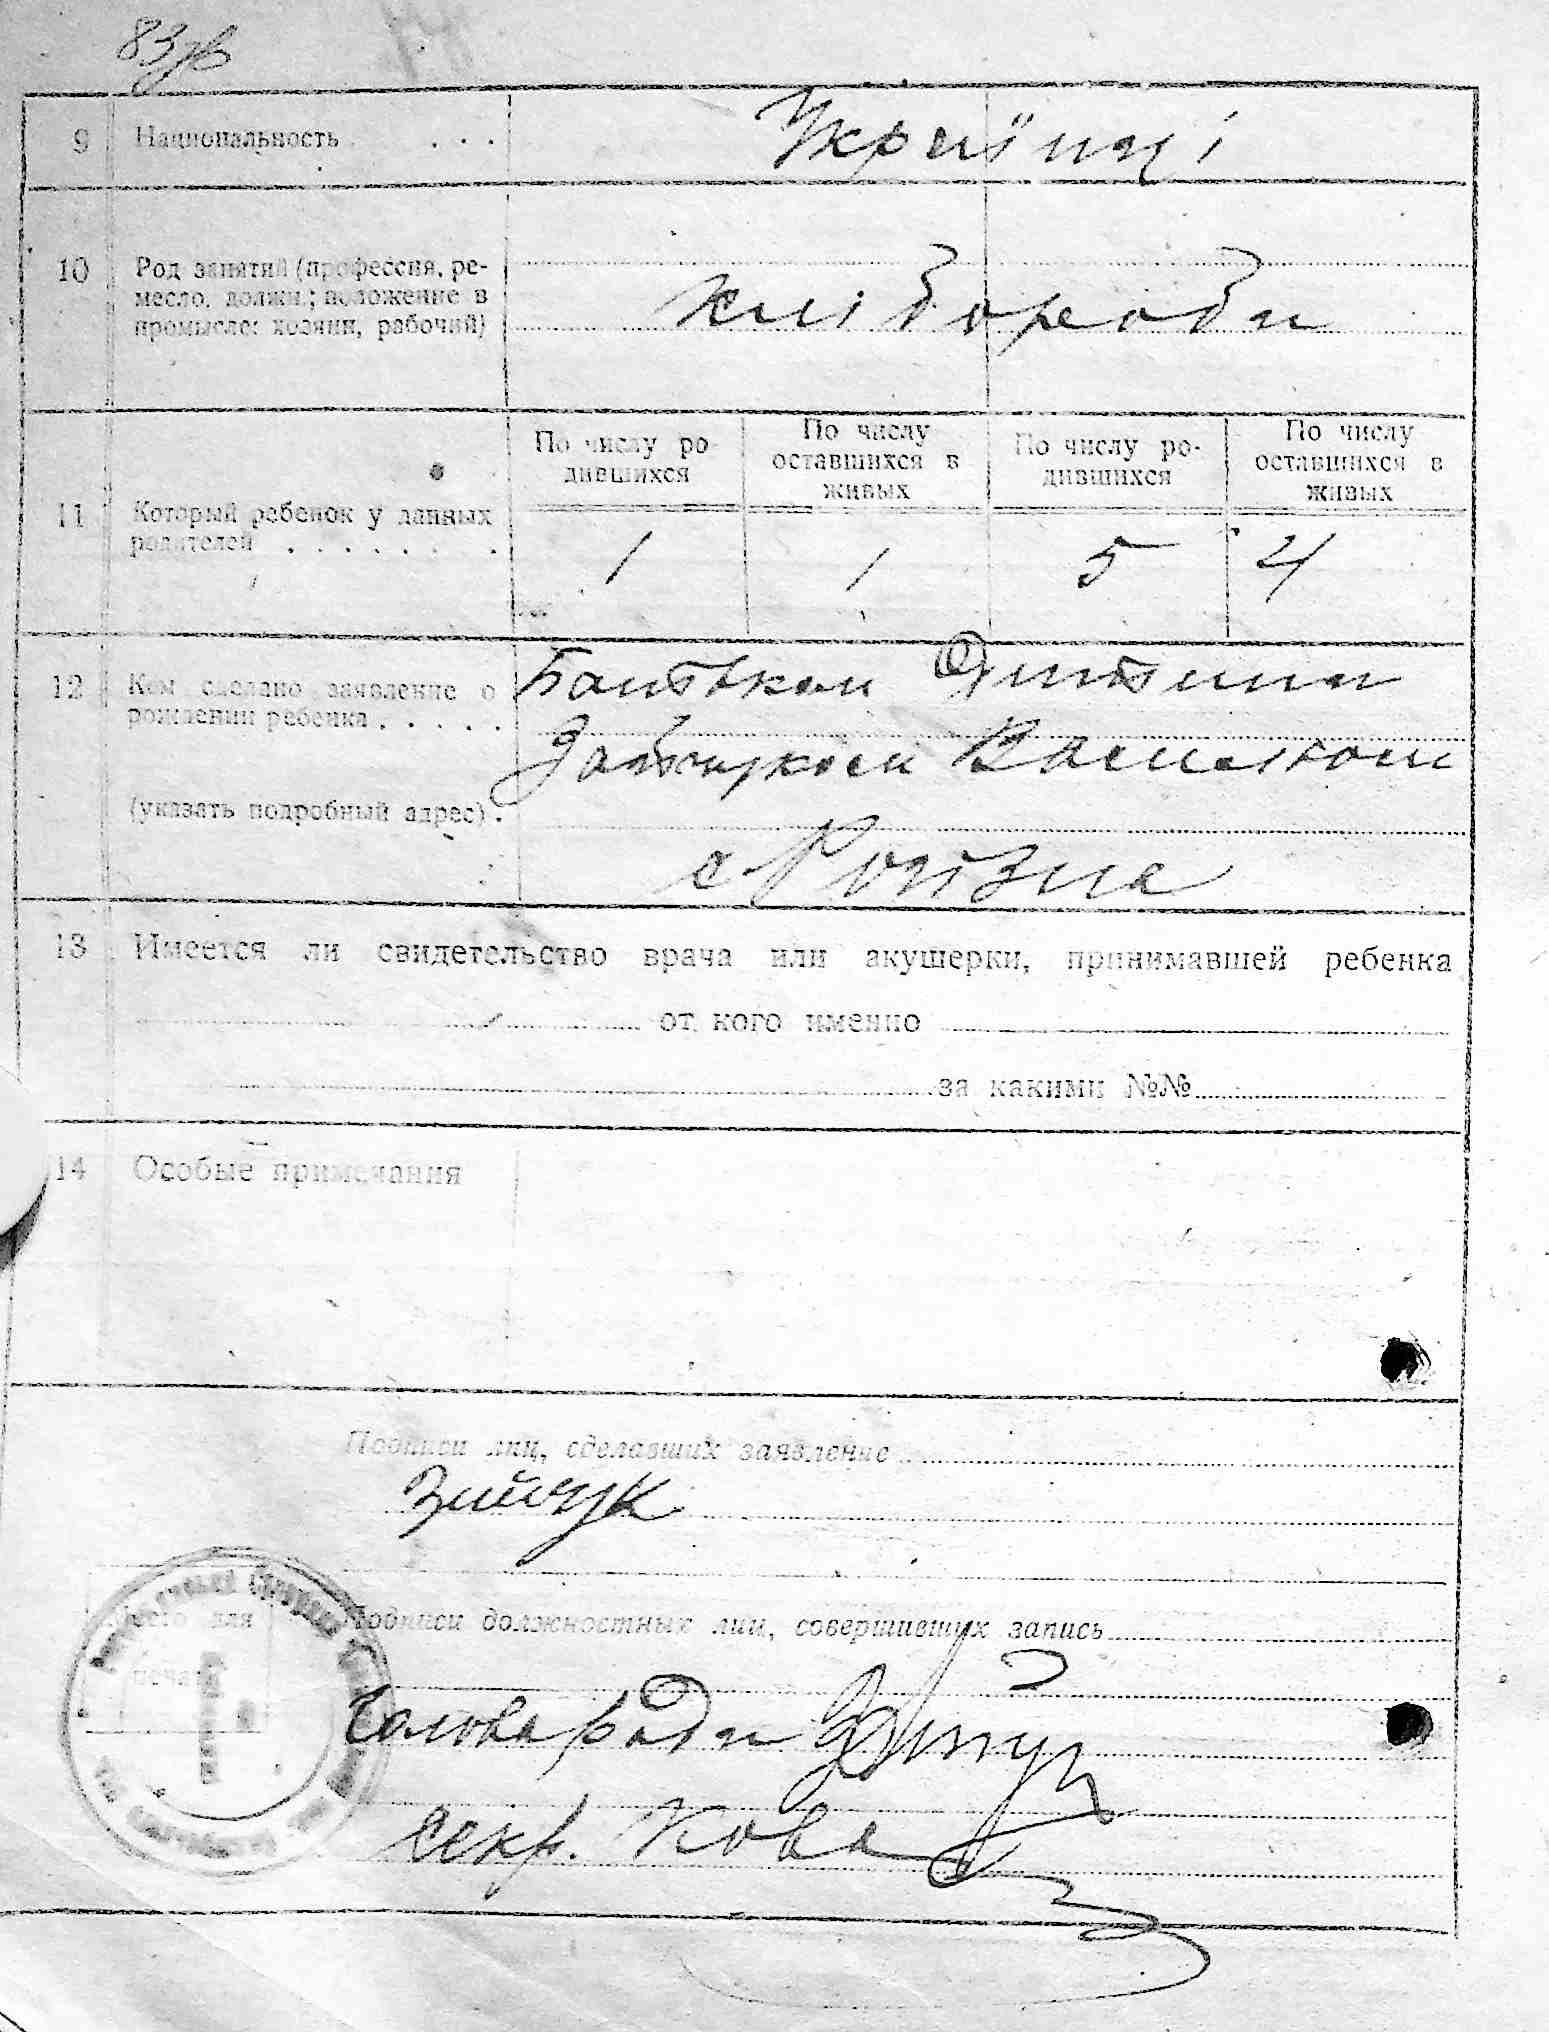 83зв
9 Национальность . . . Українці
10 Род занятий (профессия, ре-
месло, должн.; положение в
промысле: хозяин, рабочий)
хліборобы
По числу ро-
дившихся
По числу
оставшихся в
живых
По числу ро-
дившихся
По числу
оставшихся в
живых
11 Который ребенок у данных
родителей . . . . . . .
1 1 5 4
12 Кем сделано заявление о
рождении ребенка . . . . .
Батьком Дитини
Василём
(указать подробный адрес) .
с.
13 Имеется ли свидетельство врача или акушерки, принимавшей ребенка
от кого именно
за какими №№
14 Особые примечания
Подписи лиц, сделавших заявление
Зайчук
Место для
печати
Подписи должностных лиц, совершивших запись
Голова ради
секр.